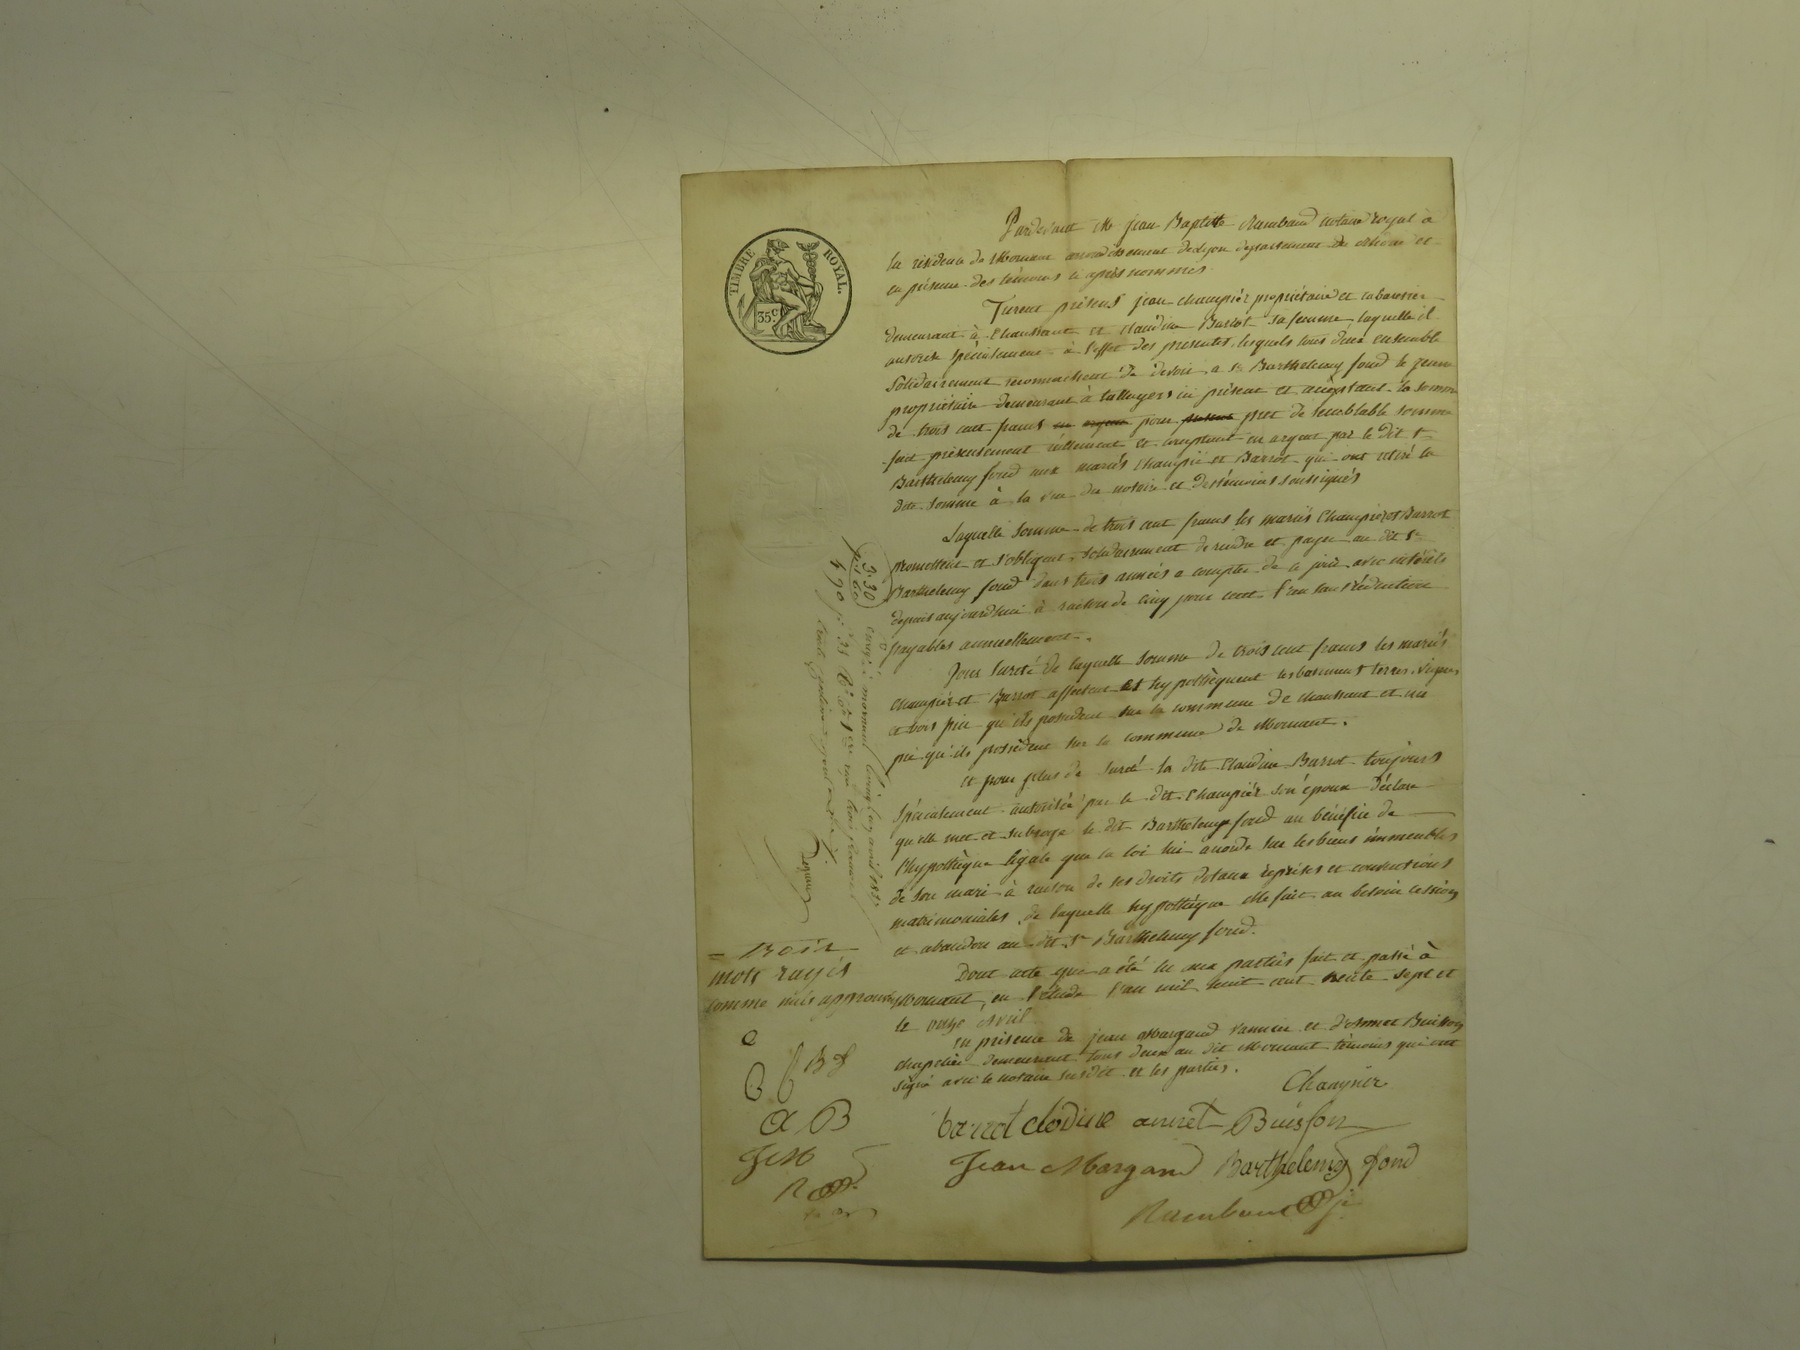 TIMBRE ROYAL.
35 c.
Pardevant Me jean Baptiste Rambaud notaire royal à
la résidence de Mornant arrondissement de Lyon département du Rhône et
en présence des témoins ci après nommés
Furent présens jean champier propriétaire et cabaretier
demeurant à Chaussant et claudine Barrot sa femme laquelle il
autorise spécialement à l'effet des présentes, lesquels tous deux ensemble
Solidairement reconnaissent de devoir a Sr Barthelemy fond le jeune
propriétaire demeurant à talluyers ici présent et acceptant la somme
de trois cent francs en argent pour pret de semblable somme
fait présentement réellement et comptant en argent par le dit Sr
Barthelemy fond aux mariés champier et Barrot qui ont retiré la
dite somme à la vue du notaire et des témoins soussignés
Laquelle somme de trois cent francs les mariés Champier et Barrot
promettent et s'obligent solidairement de rendre et payer au dit Sr
Barthelemy fond dans trois années a compter de ce jour avec intérêts
depuis aujourdhui à raison de cinq pour cent l'an sans réduction
payables annuellement.
Pour sureté de laquelle somme de trois cent francs les mariés
champier et Barrot affectent et hypothèquent les batiments terres, vignes
et bois pin qu'ils possedent sur la commune de chaussant et un
pré qu'ils possèdent sur la commune de Mornant.
et pour plus de sureté la dite Claudine Barrot toujours
spécialement autorisée par le dit Champier son époux déclare
qu'elle met et subroge le dit Barthelemy fond au bénéfice de
l'hypothèque légale que la loi lui accorde sur les biens immeubles
de son mari à raison de ses droits dotaux reprises et conventions
matrimoniales, de laquelle hypothèque elle fait au besoin cession
et abandon au dit Sr Barthelemy fond.
Dont acte qui a été lu aux parties fait et passé à
Mornant, en l'étude l'an mil huit cent trente sept et
le onze Avril
en présence de jean Margand vannier et d'Annet Buisson
chapelier demeurant tous deux au dit Mornant témoins qui ont
signé avec le notaire susdit et les parties.
Champier
barrot clodine annet Buisson
Jean Margand Barthelemy fond
Rambaud
= Trois
mots rayés
comme nuls approuvés
C
B f
B C
A B
J M
R
3.30
1.60
4 90